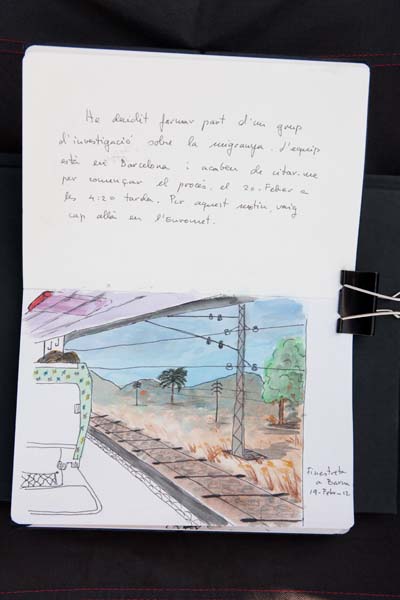 He decidit formar part d'un grup
d'investigació sobre la migranya. L'equip
està en Barcelona i acaben de citar-me
per començar el procés, el 20-Feber a
les 4:20 tarda. Per aquest motiu, vaig
cap allà en l'Euromet.
Finestreta
a Barna
19-Febr-12